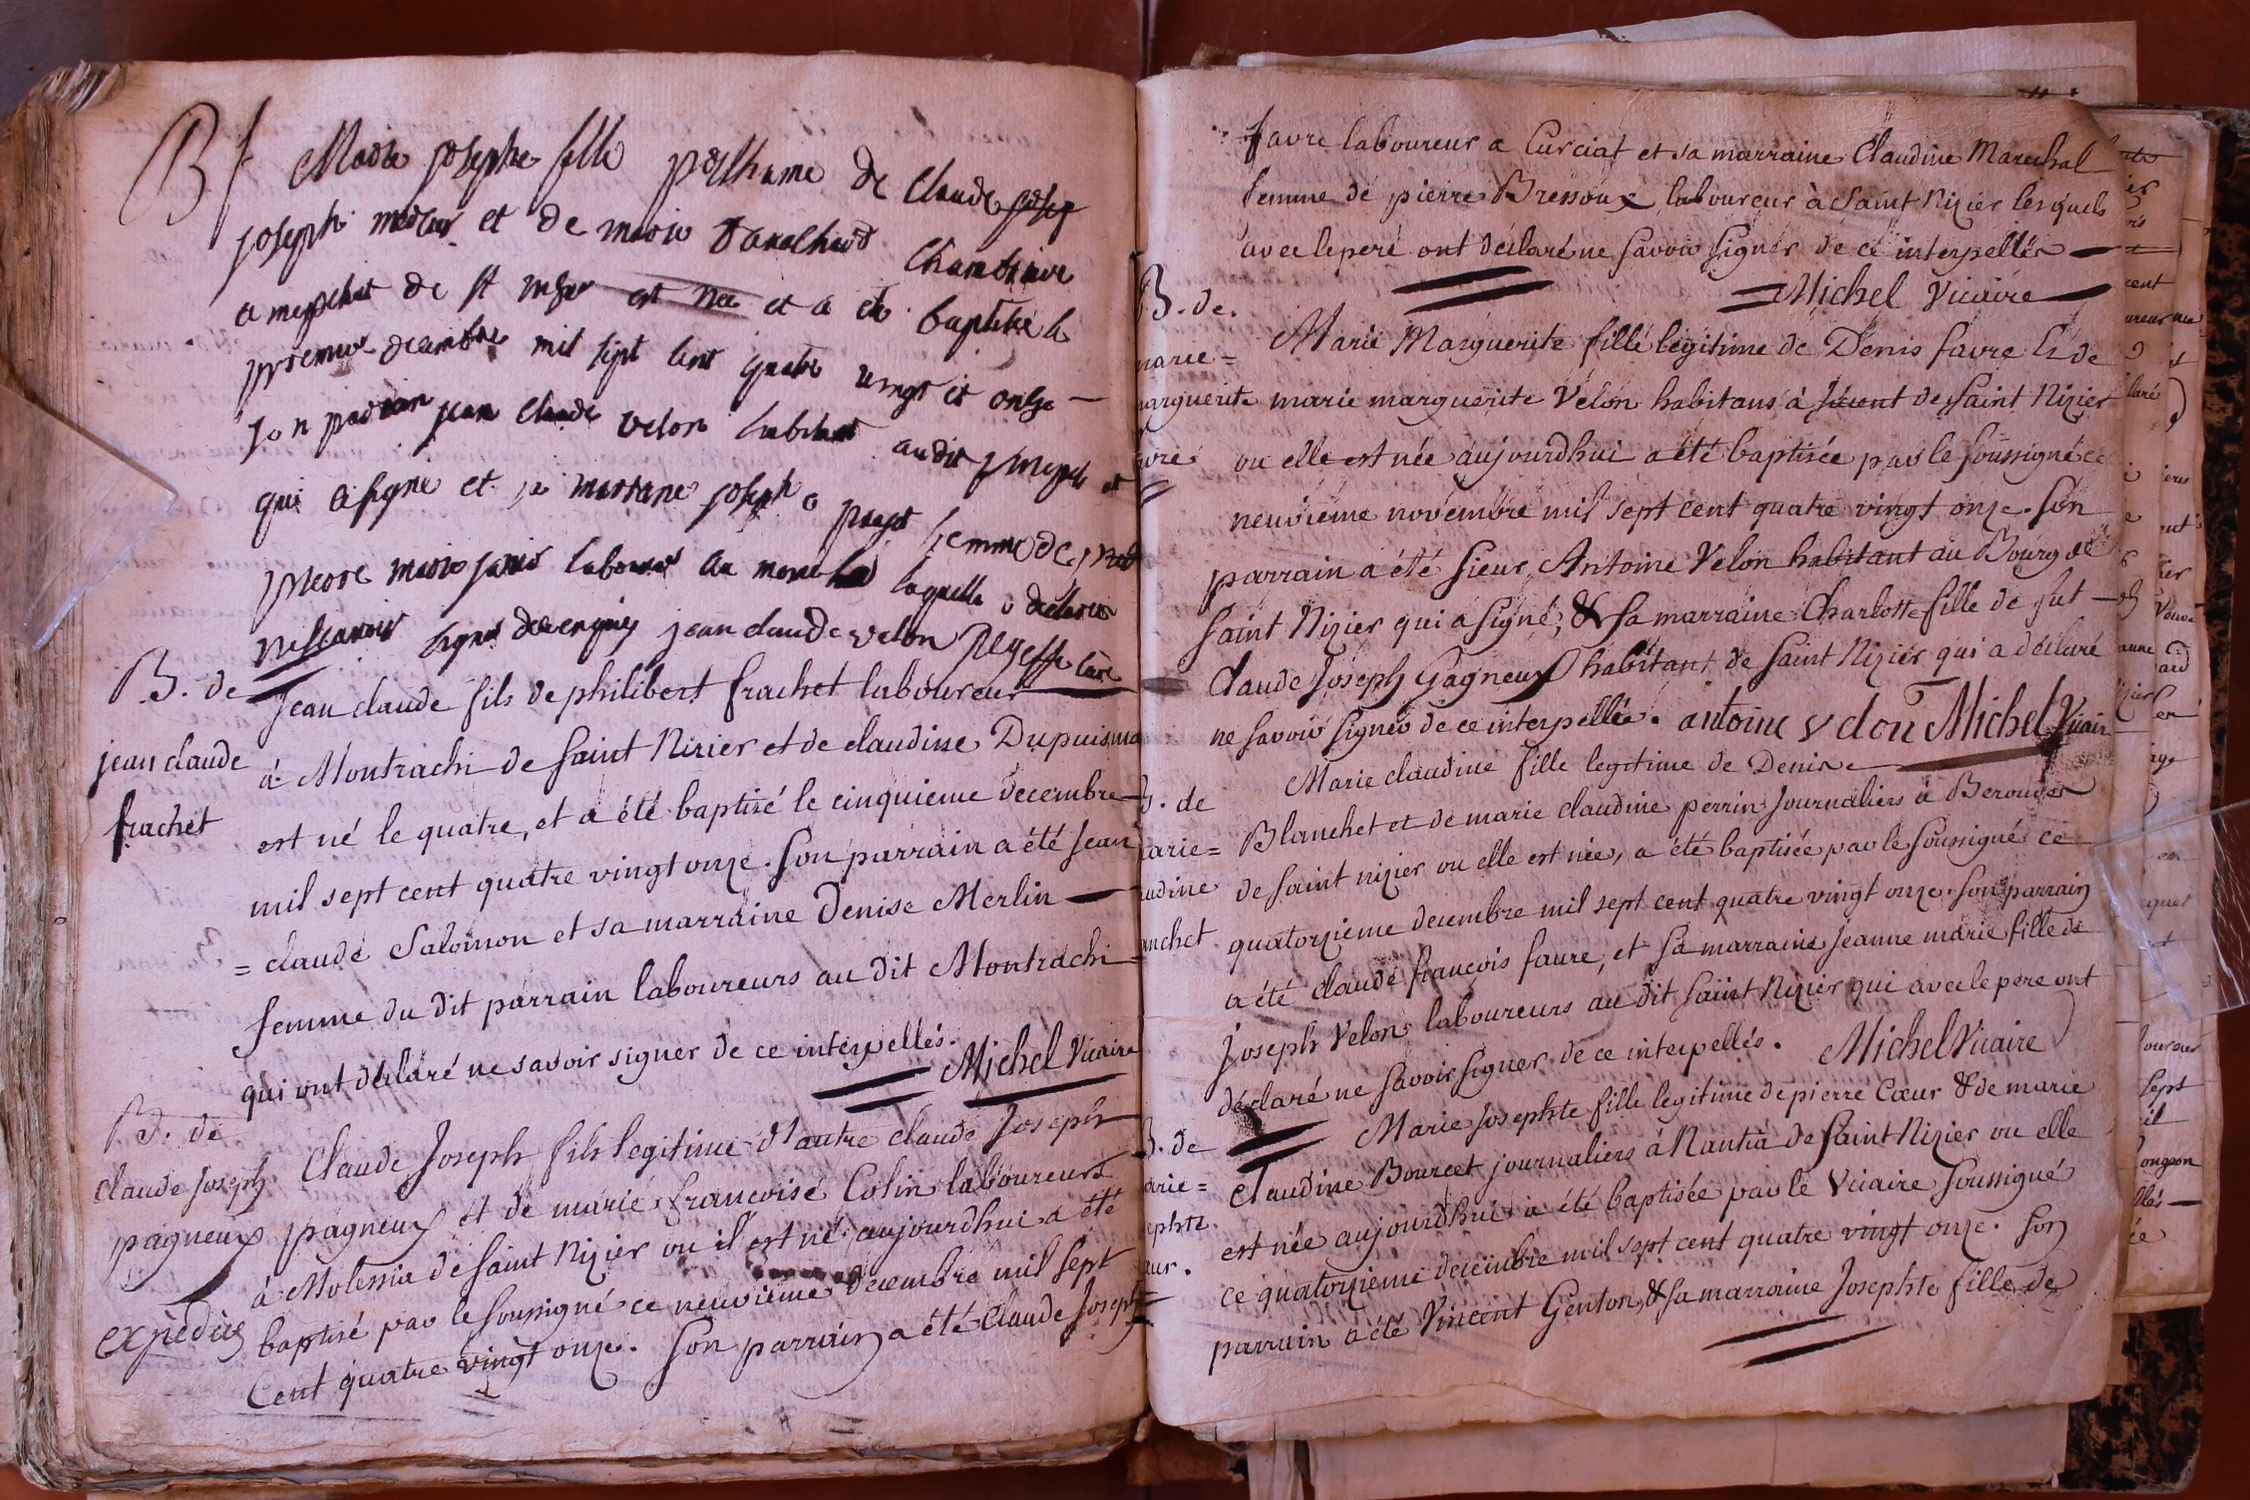 B f Marie josephe fille posthume de Claude
joseph et de marie chambriere
a de st est née et a été baptisée le
premier decembre mil sept cent quatre vingt et onse
son parrain jean Claude velon habitant audit et
qui a signé et sa marrane joseph femme de
pierre labourer au laquelle a declaree
signer jean claude velon curé
B. de
jean claude
frachet
Jean claude fils de philibert frachet laboureur
à Montrachi de Saint Nizier et de claudine Dupuis
est né le quatre, et a été baptisé le cinquieme decembre
mil sept cent quatre vingt onze. Son parrain a été Jean
= claude Salomon et sa marraine Denise Merlin
femme du dit parrain laboureurs au dit Montrachi
qui ont déclaré ne savoir signer de ce interpellés.
Michel Vicaire
B. de
claude Joseph
pagneux
expedié
Claude Joseph fils legitime d'autre claude Joseph
pagneux et de marie francoise Colin laboureurs
à Molessia de Saint Nizier ou il est né aujourdhui a été
baptisé par le soussigné ce neuvieme decembre mil sept
Cent quatre vingt onze. Son parrain a été Claude Joseph
favre laboureur a Curciat et sa marraine Claudine Marechal
femme de pierre Bressoux laboureur à Saint Nizier lesquels
avec le pere ont declaré ne savoir signer de ce interpellés
Michel Vicaire
B. de
marie =
marguerite
Marie Marguerite fille legitime de Denis favre & de
marie marguerite Velon habitans à de Saint Nizier
ou elle est née aujourdhui a été baptisée par le soussigné ce
neuvieme novembre mil sept cent quatre vingt onze. Son
parrain a été Sieur Antoine Velon habitant au Bourg de
Saint Nizier qui a signé, & sa marraine Charlotte fille de fut
Claude Joseph Gagneux habitant de Saint Nizier qui a déclaré
ne savoir signer de ce interpellée. antoine velon Michel Vicair
B. de
Marie claudine fille legitime de Denis
Blanchet et de marie claudine perrin Journaliers à Berouder
de saint nizier ou elle est née, a été baptisée par le soussigné ce
quatorzieme decembre mil sept cent quatre vingt onze. Son parrain
a été claude francois faure, et sa marraine Jeanne marie fille de
Joseph Velon laboureurs au dit saint Nizier qui avec le pere ont
déclaré ne savoir signer de ce interpellés. Michel Vicaire
B. de
Marie Josephte fille legitime de pierre Cœur & de marie
Claudine Bourcet journaliers à Nantia de Saint Nizier ou elle
est née aujourdhui a été baptisée par le Viciaire soussigné
ce quatorzieme decembre mil sept cent quatre vingt onze. Son
parrain a été Vincent Genton & sa marraine Josephte fille de